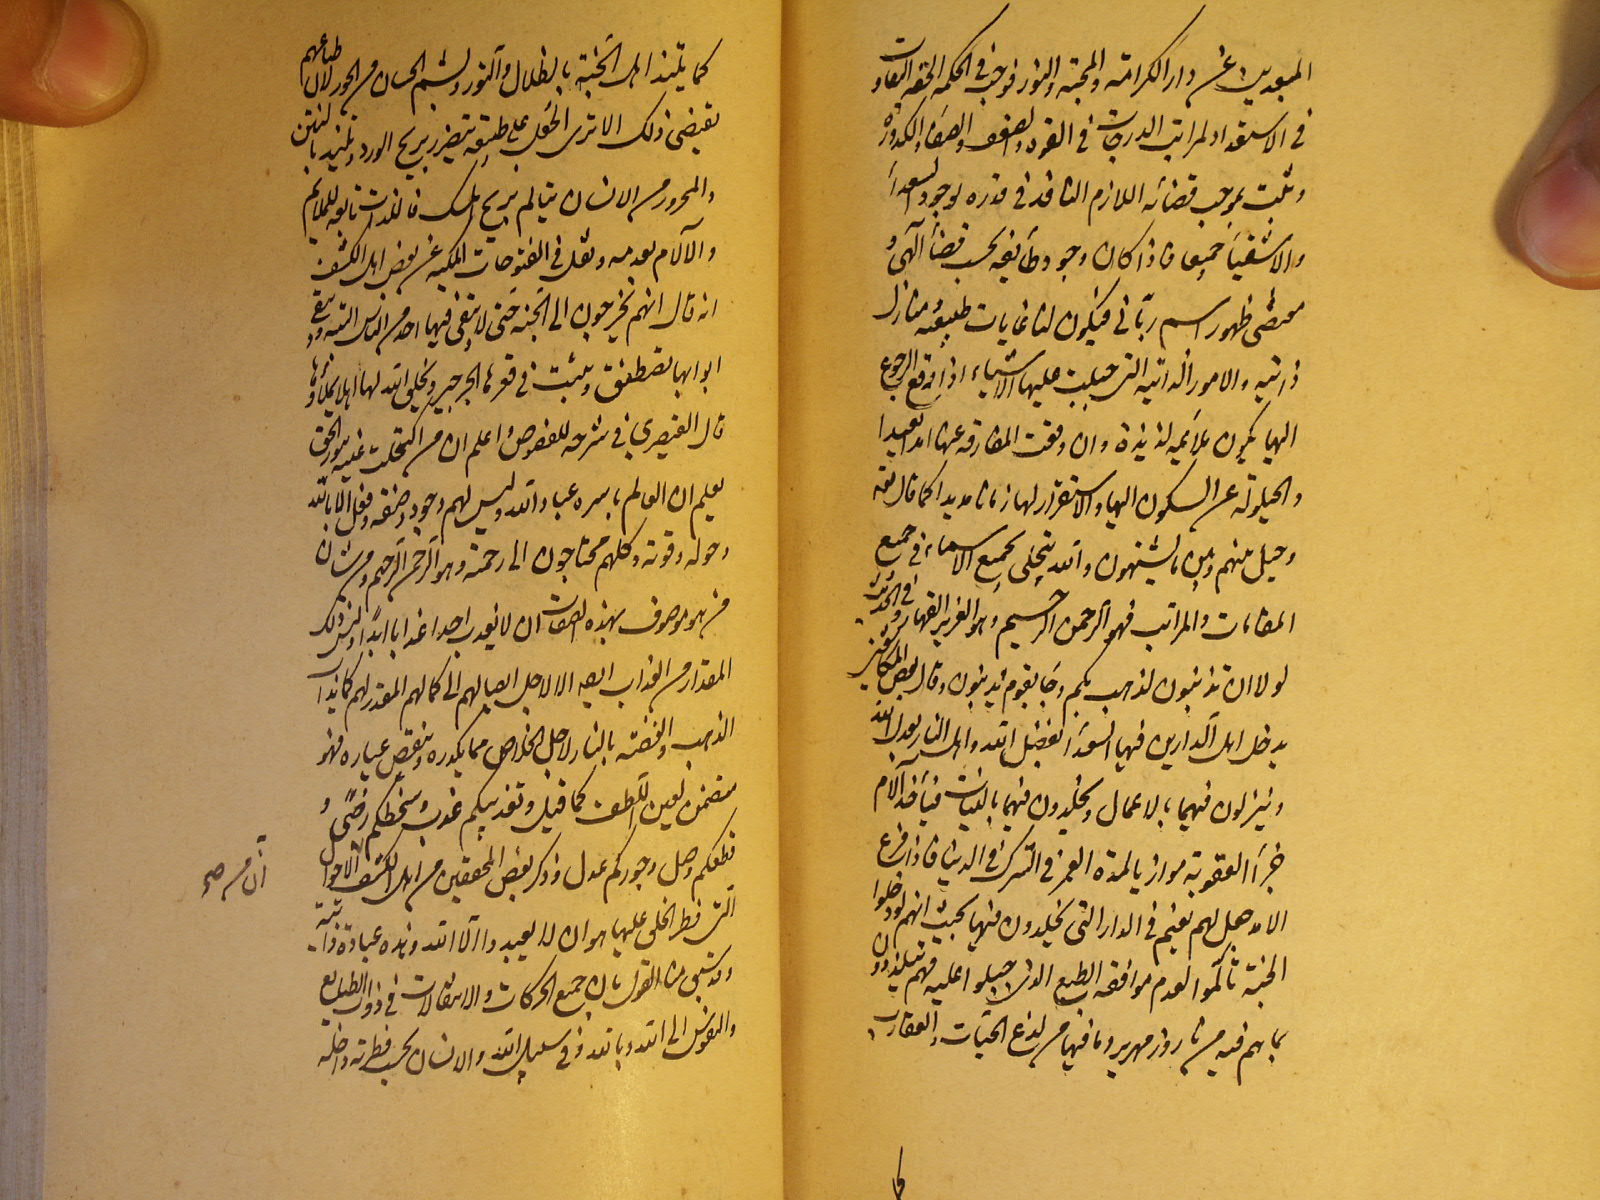 المبعدين عن دار الكرامة والمحبة والنور فوجب في الحكمة الحقة التفاوت
في الاستعداد لمراتب الدرجات في القوة والضعف والصفاء والكدورة
وثبت بموجب قضائه اللازم النافذ في قدره لوجود السعدأ
والاشقيأ جميعا فاذا كان وجود كل طايفة بحسب قضأ آلهي و
مقتضى ظهور اسم ربّاني فيكون لها غايات طبيعية ومنازل
ذاتية والامور الذاتية التى جبلت عليها الاشياء اذا وقع الرجوع
اليها يكون ملايمة لذيذة وان وقعت المفارقة عنها امدا بعيدا
والحيلولة عن السكون اليها والاستقرار لها زمانا مديدا كما قال تعه
وحيل بينهم وبين ما يشتهون والله يتجلى بجميع الاسماء في جميع
المقامات والمراتب فهو الرحمن الرحيم وهو العزيز القهار وفي الحديث
لولا ان تذنبون لذهب بكم وجأ بقوم يذنبون وقال بعض المكاشفين
يدخل اهل الدارين فيها السعدأ بفضل الله واهل النار بعدل الله
وينزلون فيهما بالاعمال ويخلدون فيهما بالنيات فيأخذ الآلام
جزأ العقوبة موازيا لمدة العمر في الشرك في الدنيا فاذا فرغ
الامد جعل لهم نعيم في الدار التى يخلدون فيها بحيث انهم لو دخلوا
الجنة تألموا لعدم موافقة الطبع الذى جبلوا عليه فهم يتلذذون
بما هم فيه من نار وزمهرير وما فيها من لذع الحيّات والعقارب
كما
كما يلتذ اهل الجنة بالظلال والنور ولثم الحسان من الحور لان طباعهم
يقتضى ذلك الا ترى الجعل على طبيعة يتضرر بريح الورد ويلتذ بالنتن
والمحرور من الانسان يتالم بريح المسك فاللذات تابعة للملايم
والآلام لعدمه ونقل في الفتوحات المكية عن بعض اهل الكشف
انه قال انهم يخرجون الى الجنة حتى لا يبقى فيها احد من الناس البتة ويبقى
ابوابها تصطفق وينبت في قعرها الجرجير ويخلق الله لها اهلا يملأوها
قال القيصري في شرحه للفصوص واعلم ان من اكتحلت عينه بنور الحق
يعلم ان العالم باسره عباد الله وليس لهم وجود وصفة وفعل الا بالله
وحوله وقوته وكلهم محتاجون الى رحمته وهو الرحمن الرحيم ومن شان
من هو موصوف بهذه الصفات ان لا يعذب احدا عذابا ابدًا وليس ذلك
المقدار من العذاب ايضه الا لاجل ايصالهم الى كمالهم المقدر لهم كما يذاب
الذهب والفضة بالنار لاجل الخلاص مما يكدره وينقص عياره فهو
متضمن لعين اللطف كما قيل وتعذيبكم عذب وسخطكم رضًى و
قطعكم وصل وجوركم عدل وذكر بعض المحققين من اهل الكشف الاحوال
التى فطر الخلق عليها هو ان لا يعبدوا الّا الله وهذه عبادة ذاتية
وقد سبق منا القول بان جميع الحركات والانتقالات في ذوات الطبايع
والنفوس الى الله وبالله وفي سبيل الله والانسان بحسب فطرته داخل